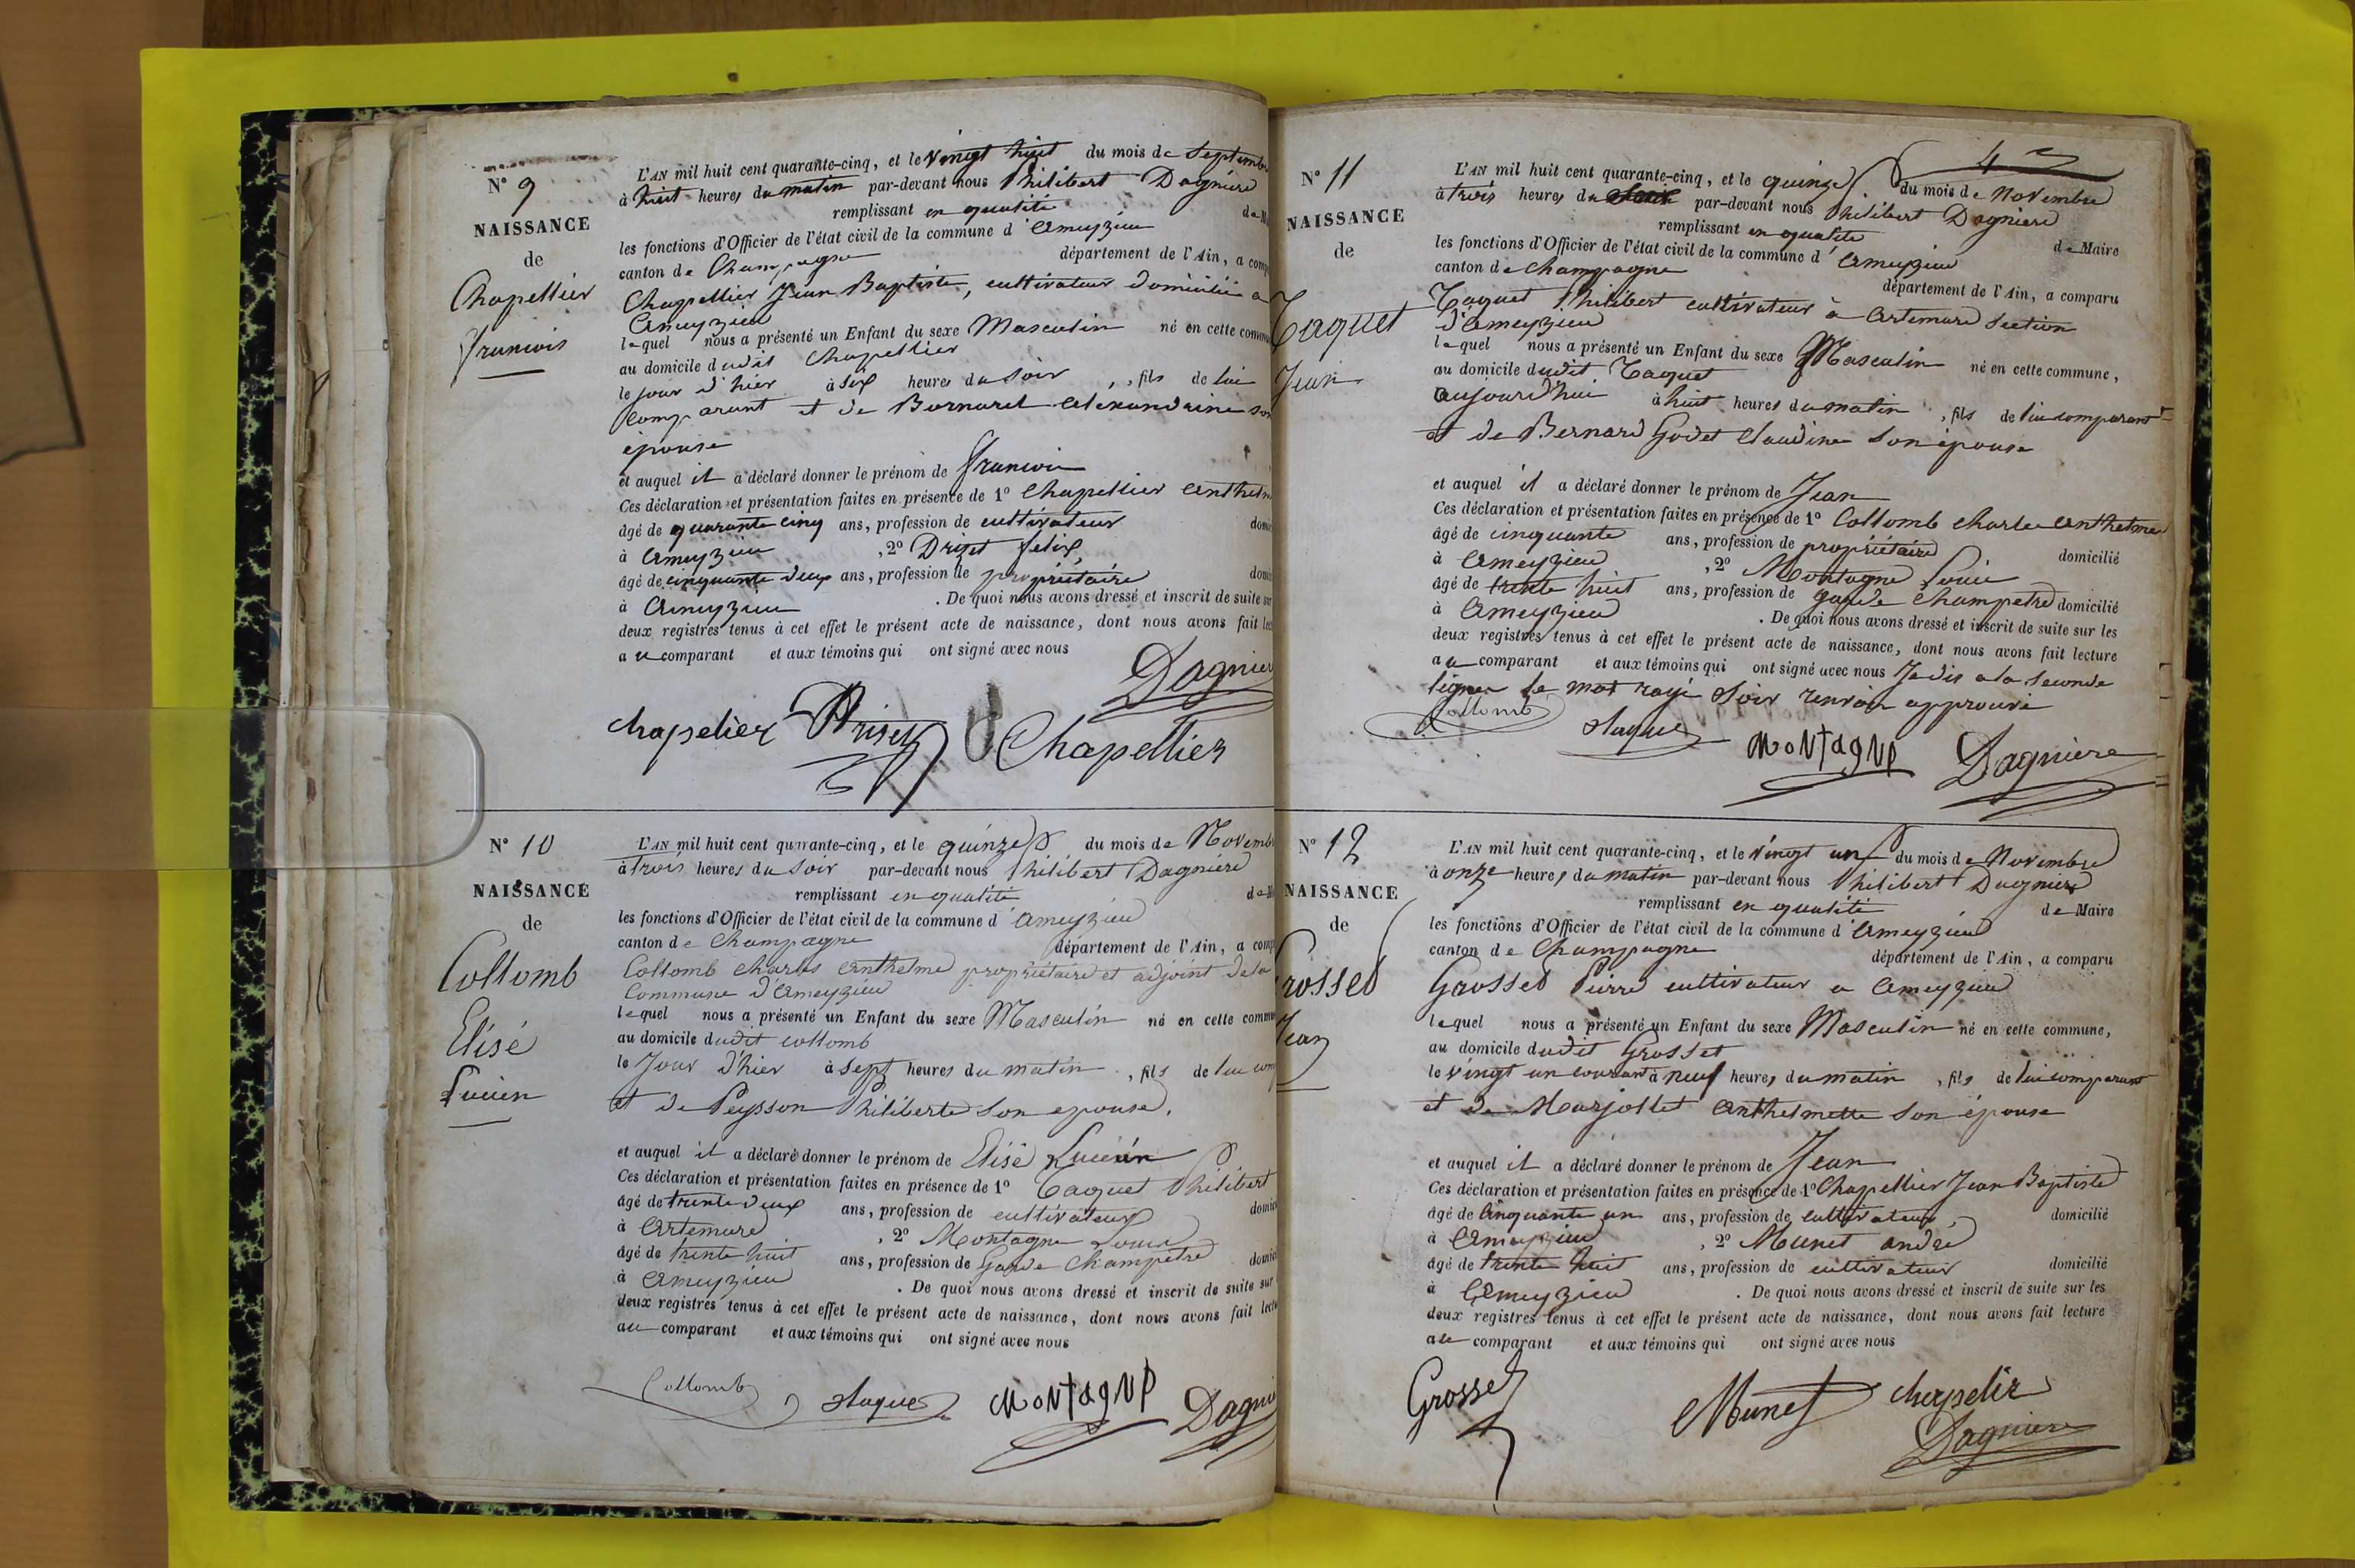 N° 9
NAISSANCE
de
Chapellier
francois
L'AN mil huit cent quarante-cinq, et le vingt huit du mois de Septembre
à huit heures du matin par-devant nous Philibert Dagnière
remplissant en qualité de M
les fonctions d'Officier de l'état civil de la commune d'Ameyzieu
canton de Champagne département de l'Ain, a comp
Chapellier Jean Baptiste, cultivateur domicilié a
Ameyzieu
lequel nous a présenté un Enfant du sexe Masculin né en cette commu
au domicile dudit Chapellier
le jour d'hier à six heures du soir, fils de lui
comparant et de Bernard Alexandrine son
épouse
et auquel il a déclaré donner le prénom de francois
Ces déclaration et présentation faites en présence de 1° Chapellier Anthelm
âgé de quarante cinq ans, profession de cultivateur domi
à Ameyzieu, 2° Drizet felix
âgé de cinquante deux ans, profession de propriétaire domi
à Ameyzieu. De quoi nous avons dressé et inscrit de suite sur
deux registres tenus à cet effet le présent acte de naissance, dont nous avons fait lec
au comparant et aux témoins qui ont signé avec nous
Dagnier
chapelier Drizet Chapellier
N° 10
NAISSANCE
de
Collomb
Elisé
Lucien
L'AN mil huit cent quarante-cinq, et le quinze du mois de Novemb
à trois heures du soir par-devant nous Philibert Dagnière
remplissant en qualité de M
les fonctions d'Officier de l'état civil de la commune d'Ameyzieu
canton de Champagne département de l'Ain, a comp
Collomb Charles Anthelme propriétaire et adjoint de la
Commune d'Ameyzieu
lequel nous a présenté un Enfant du sexe Masculin né en cette commu
au domicile dudit collomb
le Jour d'hier à sept heures du matin, fils de lui com
et de Peysson Philiberte son epouse.
et auquel il a déclaré donner le prénom de Elisé Lucien
Ces déclaration et présentation faites en présence de 1° Taquet Philibert
âgé de trente deux ans, profession de cultivateur domici
à Artemare, 2° Montagne Louis
âgé de trente huit ans, profession de Garde Champetre domici
à Ameyzieu. De quoi nous avons dressé et inscrit de suite sur
deux registres tenus à cet effet le présent acte de naissance, dont nous avons fait lectu
au comparant et aux témoins qui ont signé avec nous
Collomb Taquet MONTAGNE Dagni
4
N° 11
NAISSANCE
de
Taquet
Jean
L'AN mil huit cent quarante-cinq, et le quinze du mois de Novembre
à trois heures du soir par-devant nous Philibert Dagnière
remplissant en qualité de Maire
les fonctions d'Officier de l'état civil de la commune d'Ameyzieu
canton de Champagne département de l'Ain, a comparu
Taquet Philibert cultivateur à Artemare Section
d'Ameyzieu
lequel nous a présenté un Enfant du sexe Masculin né en cette commune,
au domicile dudit Taquet
aujourd'hui à huit heures du matin, fils de lui comparant
et de Bernard Godet Claudine son épouse
et auquel il a déclaré donner le prénom de Jean
Ces déclaration et présentation faites en présence de 1° Collomb Charles Anthelme
âgé de cinquante ans, profession de propriétaire domicilié
à Ameyzieu, 2° Montagne Louis
âgé de trente huit ans, profession de garde Champetre domicilié
à Ameyzieu. De quoi nous avons dressé et inscrit de suite sur les
deux registres tenus à cet effet le présent acte de naissance, dont nous avons fait lecture
au comparant et aux témoins qui ont signé avec nous Je dis a la seconde
ligne le mot rayé soir renvoi approuvé
Collomb Taquet MONTAGNE Dagniere
N° 12
NAISSANCE
de
Grosset
Jean
L'AN mil huit cent quarante-cinq, et le vingt un du mois de Novembre
à onze heures du matin par-devant nous Philibert Dagnière
remplissant en qualité de Maire
les fonctions d'Officier de l'état civil de la commune d'Ameyzieu
canton de Champagne département de l'Ain, a comparu
Grosset Pierre cultivateur a Ameyzieu
lequel nous a présenté un Enfant du sexe Masculin né en cette commune,
au domicile dudit Grosset
le vingt un courant à neuf heures du matin, fils de lui comparant
et de Marjollet Anthelmette son épouse
et auquel il a déclaré donner le prénom de Jean
Ces déclaration et présentation faites en présence de 1° Chapellier Jean Baptiste
âgé de Cinquante un ans, profession de cultivateur, domicilié
à Ameyzieu, 2° Munet andré
âgé de trente huit ans, profession de cultivateur domicilié
à Ameyzieu. De quoi nous avons dressé et inscrit de suite sur les
deux registres tenus à cet effet le présent acte de naissance, dont nous avons fait lecture
au comparant et aux témoins qui ont signé avec nous
Grosset Munet chapelir
Dagniere